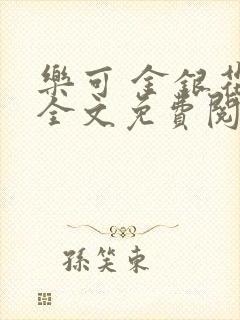 樂可 金銀花
全文免費閱
孫笑東